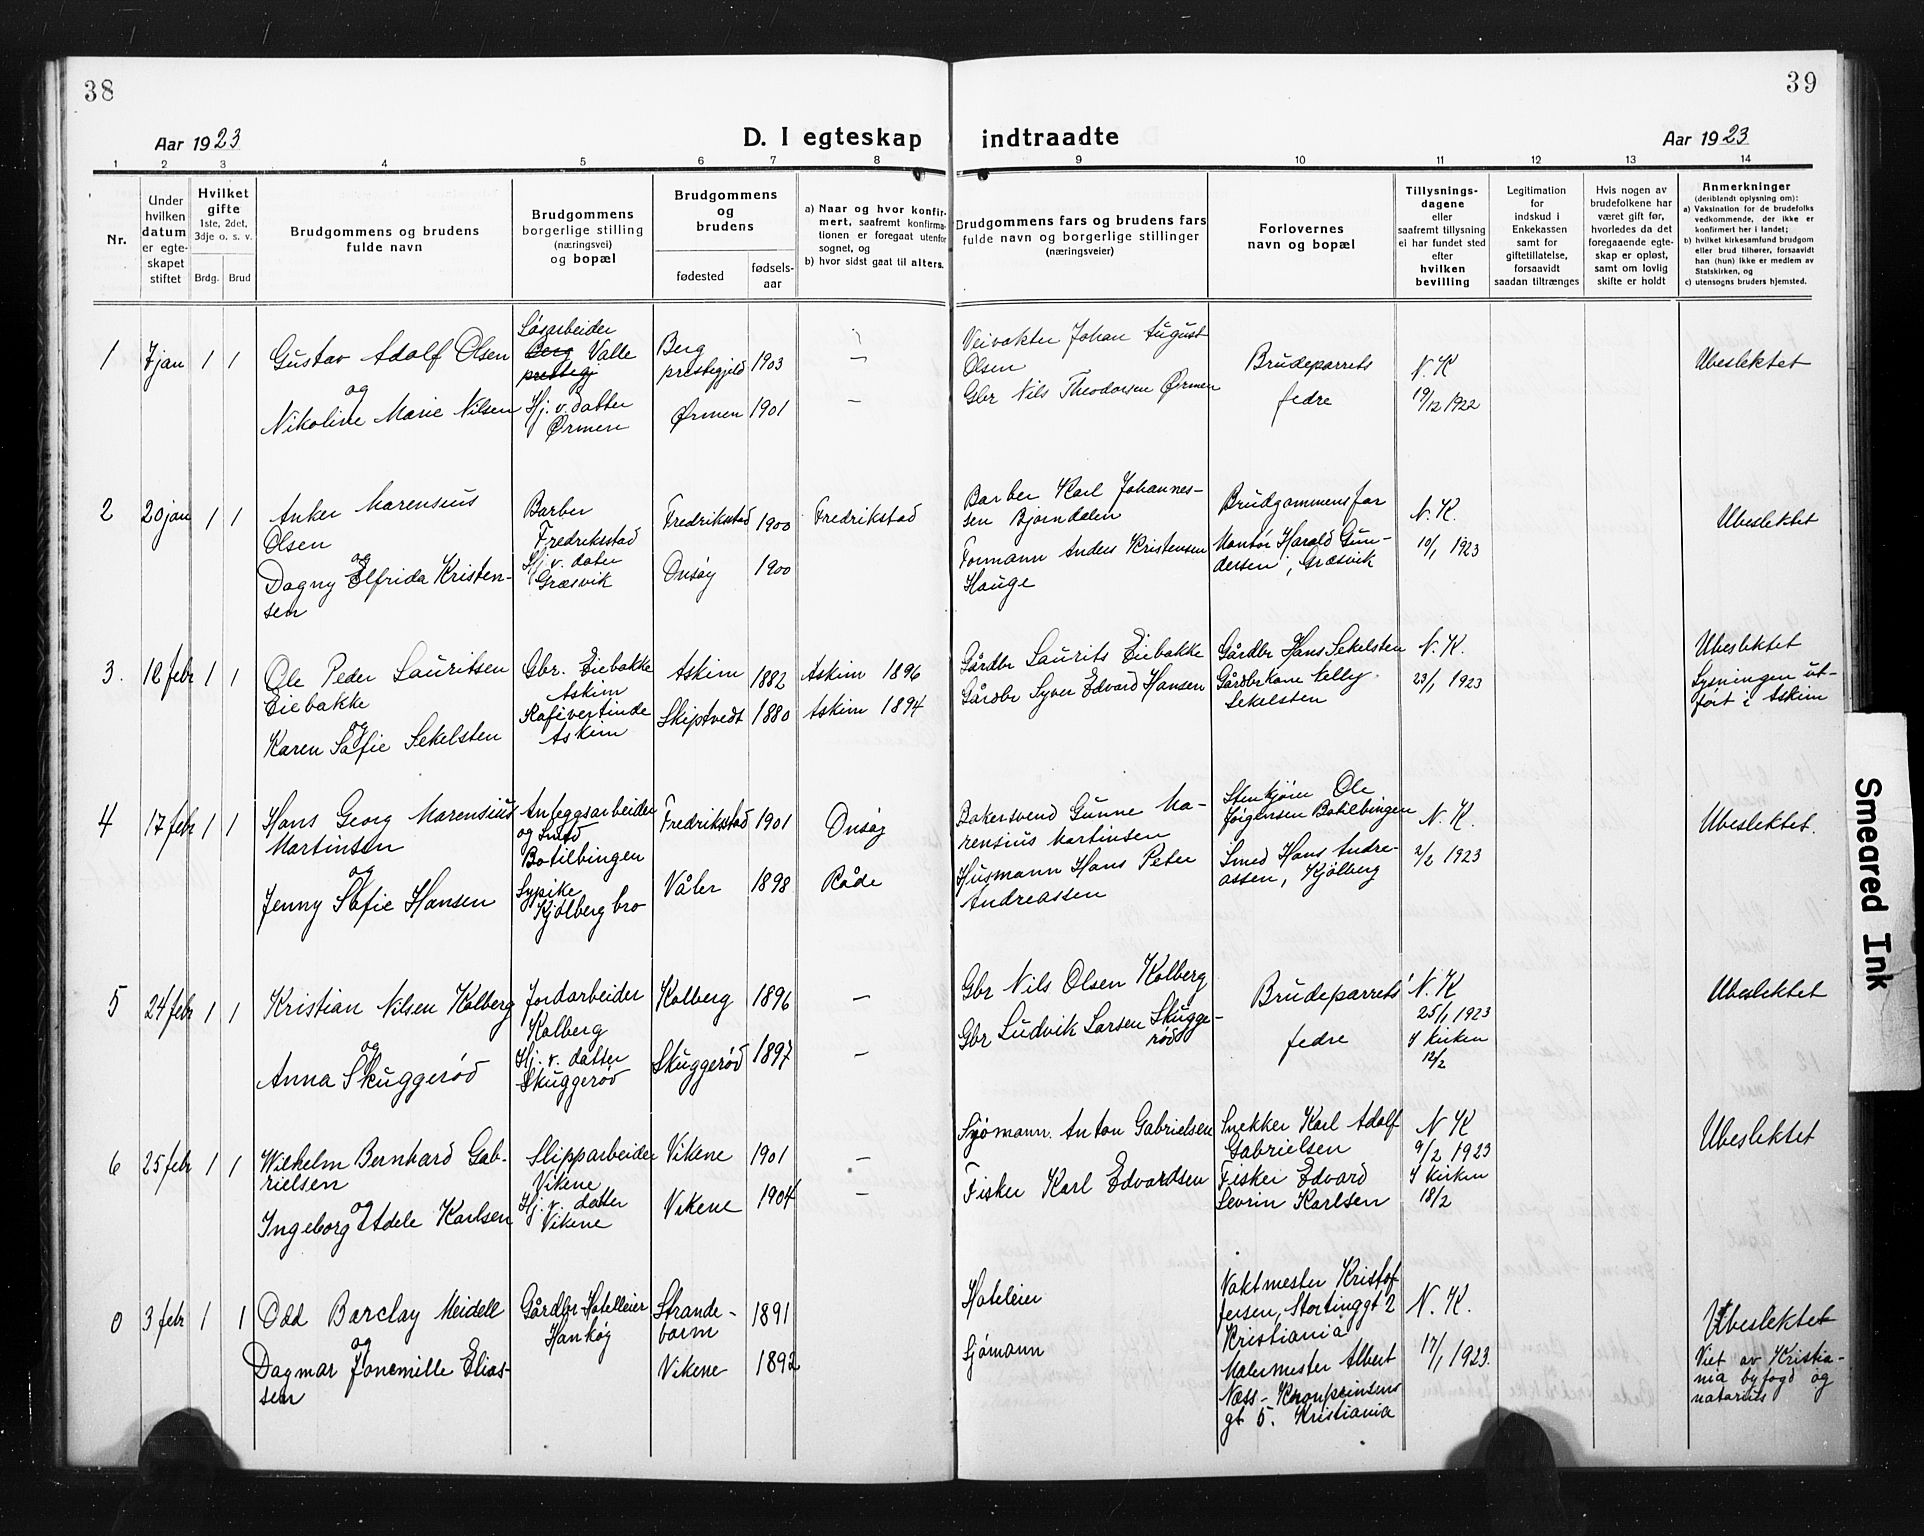 38
39
Aar 1923
D. I egteskap indtraadte
Aar 1923
1 2 3 4 5 6 7 8 9 10 11 12 13 14
Nr.
Under
hvilken
datum
er egte-
skapet
stiftet
Hvilket
gifte
1ste, 2det,
3dje o. s. v.
Brdg. Brud
Brudgommens og brudens
fulde navn
Brudgommens
borgerlige stilling
(næringsvei)
og bopæl
Brudgommens
og
brudens
fødested
fødsels-
aar
a) Naar og hvor konfir-
mert, saafremt konfirma-
tionen er foregaat utenfor
sognet, og
b) hvor sidst gaat til alters.
Brudgommens fars og brudens fars
fulde navn og borgerlige stillinger
(næringsveier)
Forlovernes
navn og bopæl
Tillysnings-
dagene
eller
saafremt tillysning
ei har fundet sted
efter
hvilken
bevilling
Legitimation
for
indskud i
Enkekassen
samt for
giftetillatelse,
forsaavidt
saadan tiltrænges
Hvis nogen av
brudefolkene har
været gift før,
hvorledes da det
foregaaende egte-
skap er opløst,
samt om lovlig
skifte er holdt
Anmerkninger
(deriblandt oplysning om):
a) Vaksination for de brudefolks
vedkommende, der ikke er
konfirmert her i landet;
b) hvilket kirkesamfund brudgom
eller brud tilhører, forsaavidt
han (hun) ikke er medlem av
Statskirken, og
c) utensogns bruders hjemsted.
1 7 jan 1 1
Gustav Adolf Olsen
og
Nikoline Marie Nilsen
Løsarbeider
Berg Valle
prestegj
Hj. v. datter
Ørmen
Berg
prestegjeld 1903
Ørmen 1901
—
—
Veivokter Johan August
Olsen
Gbr Nils Theodorsen Ørmen
Brudeparrets
fedre
N. K
19/12 1922
Ubeslektet
2 20 jan 1 1
Anker Marensius
Olsen
og
Dagny Elfrida Kristen-
sen
Barber
Fredrikstad
Hj. v. dater
Græsvik
Fredrikstad 1900
Onsøy 1900
Fredrikstad
Barber Karl Johannes-
sen Bjørndalen
Formann Anders Kristensen
Hauge
Brudgommens far
Montør Harald Gun-
dersen, Græsvik
N. K.
10/1 1923
Ubeslektet
3. 12 febr 1 1
Ole Peder Lauritsen
Eiebakke
og
Karen Sofie Sekelsten
Gbr. Eiebakke
Askim
Kafivertinde
Askim
Askim 1882
Skiptvedt 1880
Askim 1896
Askim 1894
Gårdbr Laurits Eiebakke
Gårdbr Syver Edvard Hansen
Gårdbr Hans Sekelsten
Gårdbrkone Elly
Sekelsten
N. K.
23/1 1923
Ubeslektet
Lysningen ut-
ført i Askim
4 17 febr 1 1
Hans Georg Marensius
Martinsen
og
Jenny Sofie Hansen
Anleggsarbeider
og Smed
Botilbingen
Sypike
Kjølberg bro
Fredrikstad 1901
Våler 1898
Onsøy
Råde
Bakersvend Gunne Ma-
rensius Martinsen
Husmann Hans Peter
Andreassen
Stenkjører Ole
Jørgensen Botilbingen
Smed Hans Andre-
assen, Kjølberg
N. K.
2/2 1923
Ubeslektet.
5 24 febr 1 1
Kristian Nilsen Kolberg
og
Anna Skuggerød
Jordarbeider
Kolberg
Hj. v. datter
Skuggerød
Kolberg 1896
Skuggerød 1897
—
—
Gbr Nils Olsen Kolberg
Gbr Ludvik Larsen Skugge-
rød
Brudeparrets'
fedre
N. K
25/1 1923
I kirken
12/2
Ubeslektet
6 25 febr 1 1
Wilhelm Bernhard Gab-
rielsen
og
Ingeborg Adele Karlsen
Slipparbeider
Vikene
Hj. v. datter
Vikene
Vikene 1901
Vikene 1904
—
—
Sjømann. Anton Gabrielsen
Fisker Karl Edvardsen
Snekker Karl Adolf
Gabrielsen
Fisker Edvard
Sevrin Karlsen
N K
9/2 1923
I kirken
18/2
Ubeslektet
0 3 febr 1 1
Odd Barclay Meidell
og
Dagmar Jonemille Elias-
sen
Gårdbr-Hotelleier
Hankøy
Strande-
barm 1891
Vikene 1892
Hoteleier
Sjømann
Vaktmester Kristof
fersen, Stortinggt 2
Kristiania
Malermester Albert
Næss - Kronprinsens
gt 5. Kristiania
N. K.
17/1 1923.
Ubeslektet
Viet av Kristia-
nia byfogd og
notarius
Smeared Ink